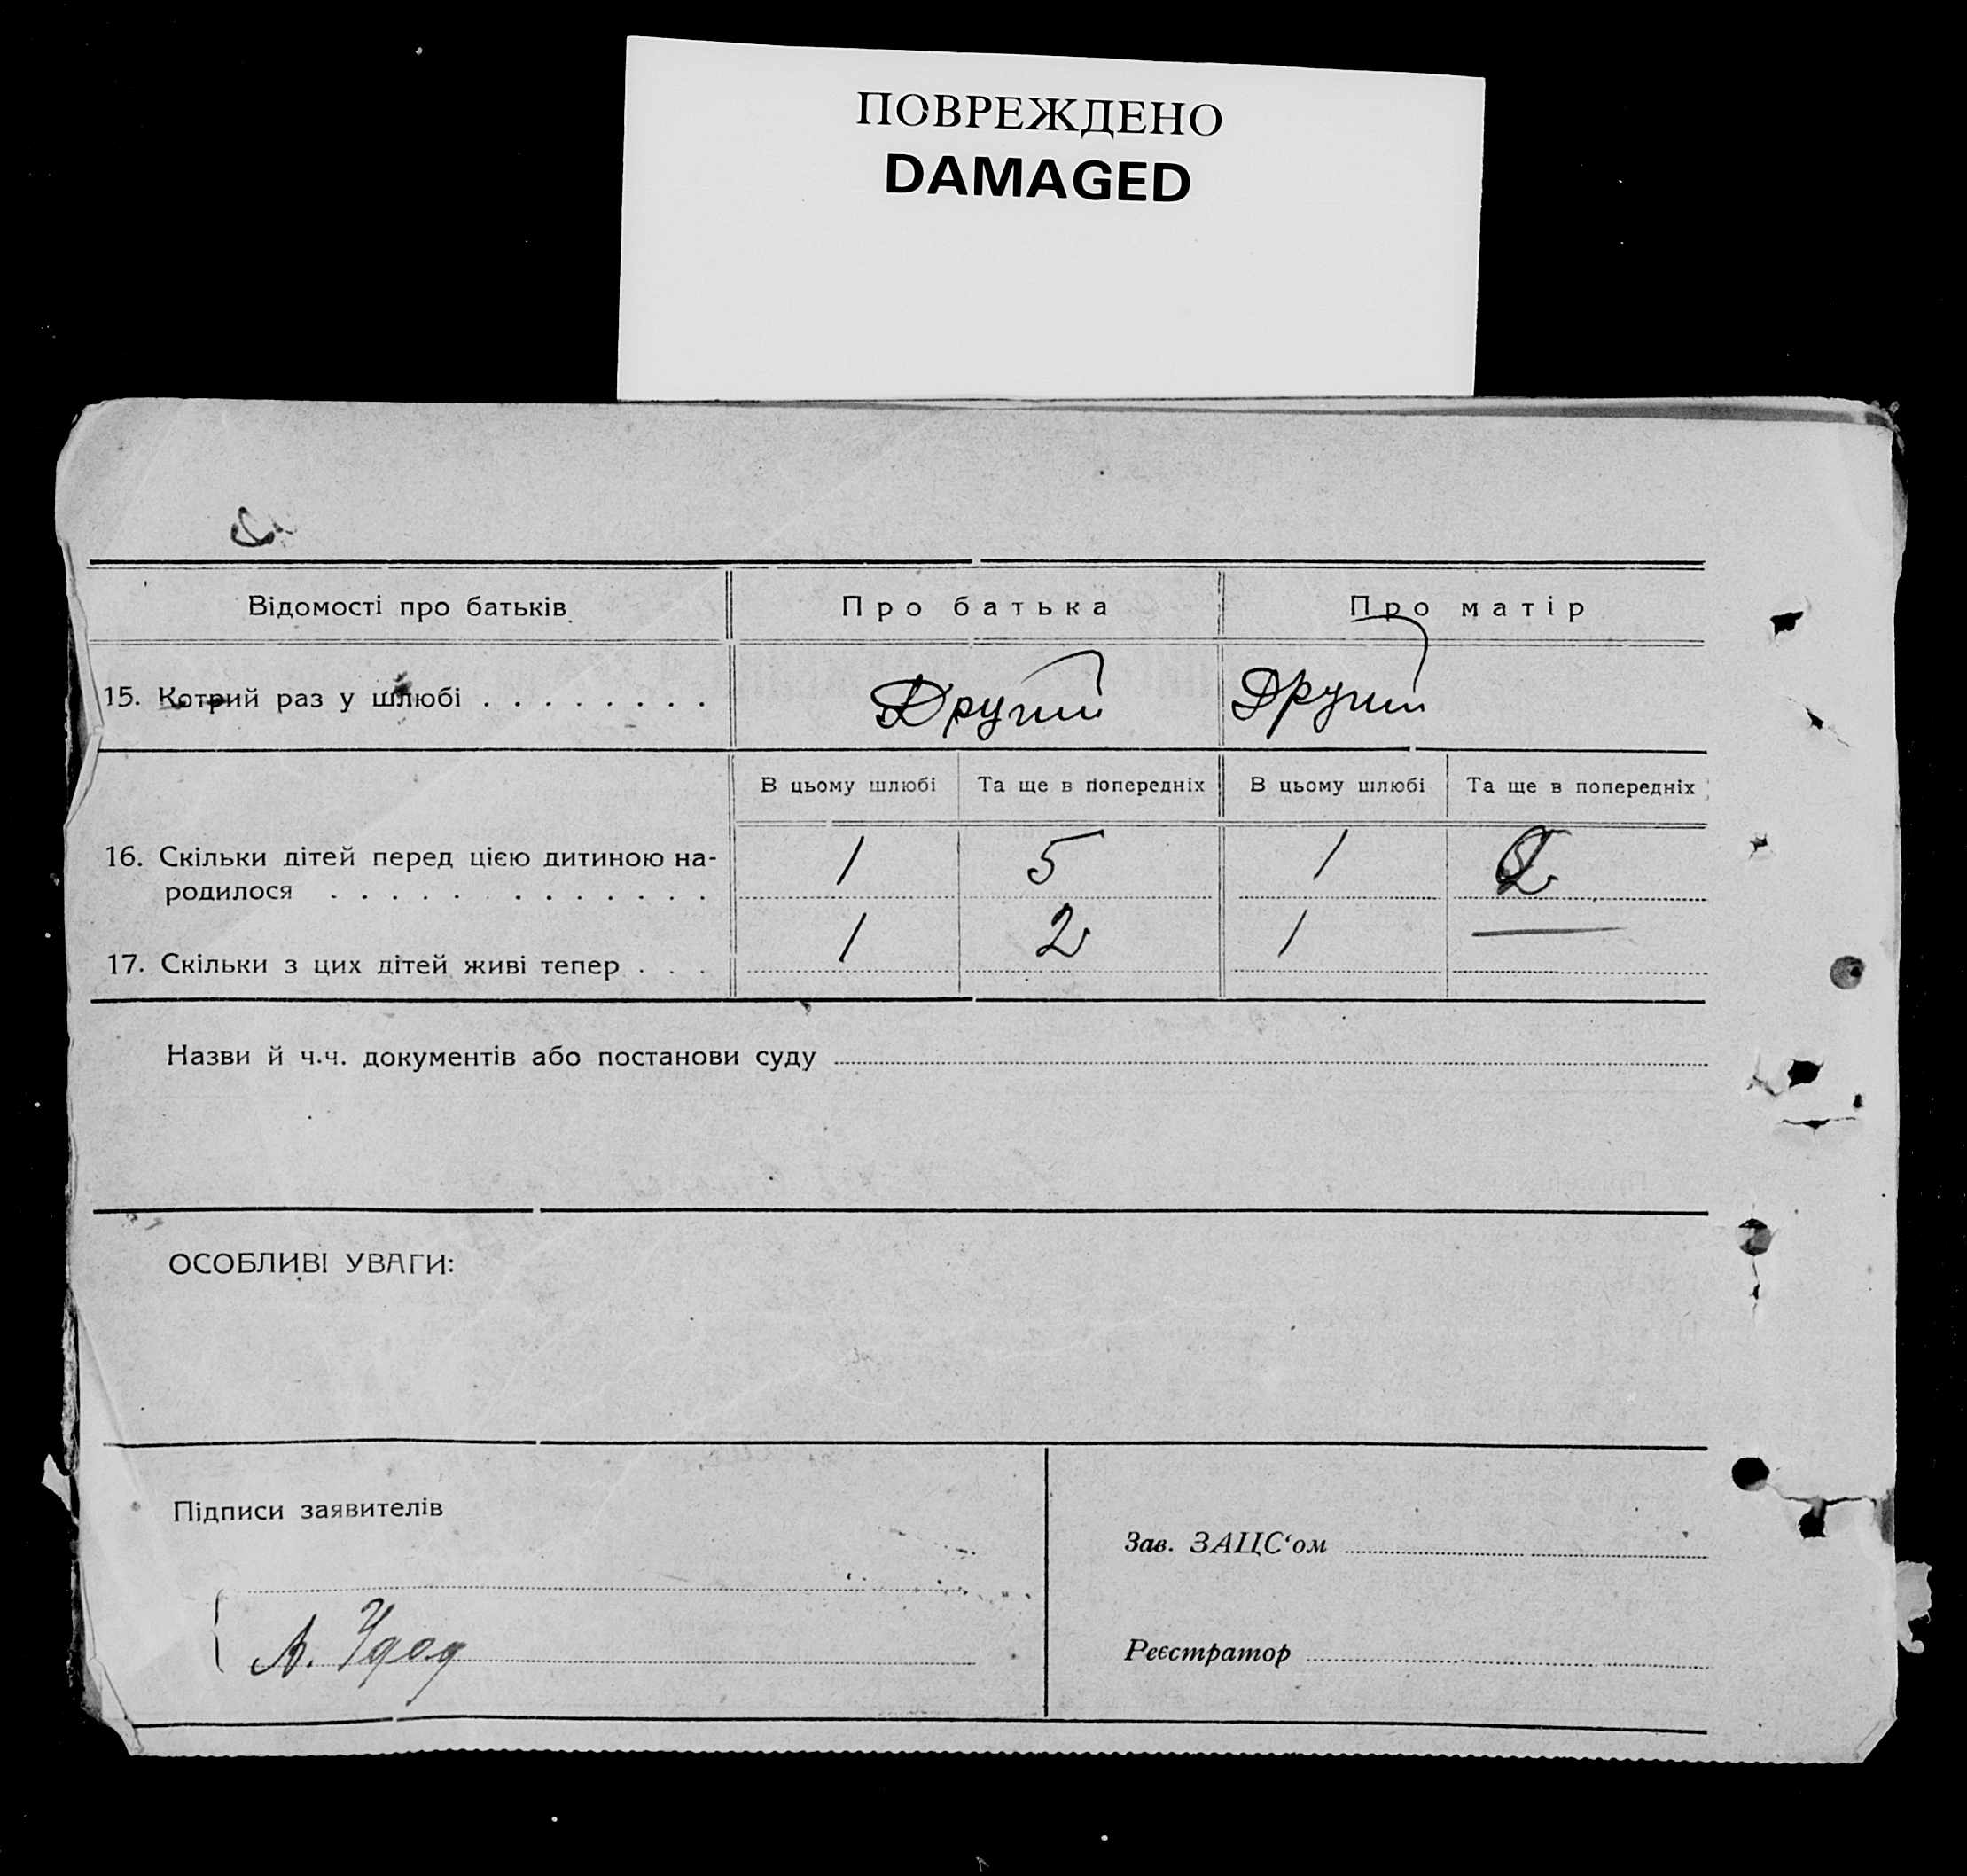 ПОВРЕЖДЕНО
DAMAGED
Відомості про батьків
Про батька
Про матір
15. Котрий раз у шлюбі . . . . . . . .
Другий
Другий
В цьому шлюбі
Та ще в попередніх
В цьому шлюбі
Та ще в попередніх
16. Скільки дітей перед цією дитиною на-
родилося . . . . . . . . . . . .
1
5
1
2
17. Скільки з цих дітей живі тепер . . .
1
2
1
—
Назви й ч.ч. документів або постанови суду
ОСОБЛИВІ УВАГИ:
Підписи заявителів
Зав. ЗАЦС‘ом
А. Удод
Реєстратор